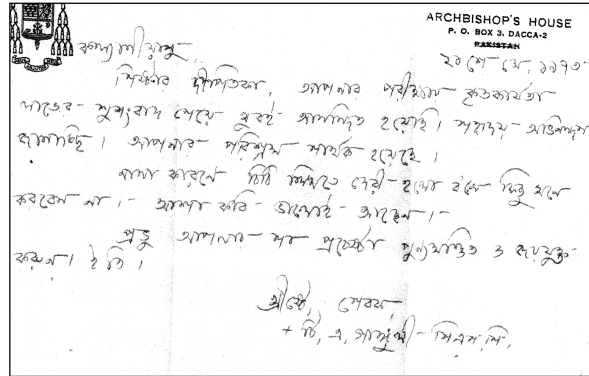 ARCHBISHOP'S HOUSE
P. O. BOX 3. DACCA-2
PAKISTAN
২১শে মে, ১৯৭৩
কল্যাণীয়াসু,
সিস্টার আপনার পরীক্ষায় কৃতকার্যতা
লাভের সুসংবাদ পেয়ে খুবই আনন্দিত হয়েছি। সহৃদয় অভিনন্দন
জানাচ্ছি। আপনার পরিশ্রম সার্থক হয়েছে।
নানা কারণে চিঠি লিখতে দেরী হলো বলে কিছু মনে
করবেন না। - আশা করি ভালোই আছেন। -
প্রভু আপনার সব প্রচেষ্টা পুণ্যমণ্ডিত ও জয়যুক্ত
করুন। ইতি।
খ্রীষ্টে, সেবক,
+ টি, এ, গাঙ্গুলী - সি.এস.সি.